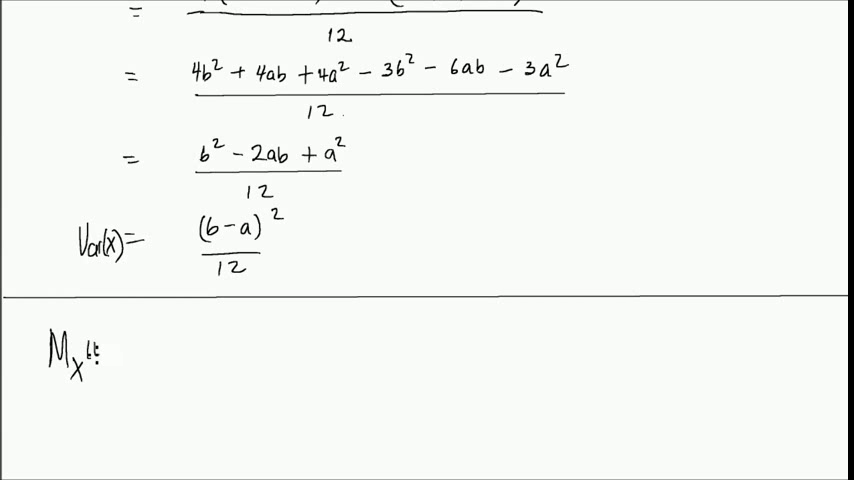 =
12
= 4b² + 4ab + 4a² − 3b² − 6ab − 3a²
12
= b² − 2ab + a²
12
Var(x) = (b−a)²
12
M_X (t